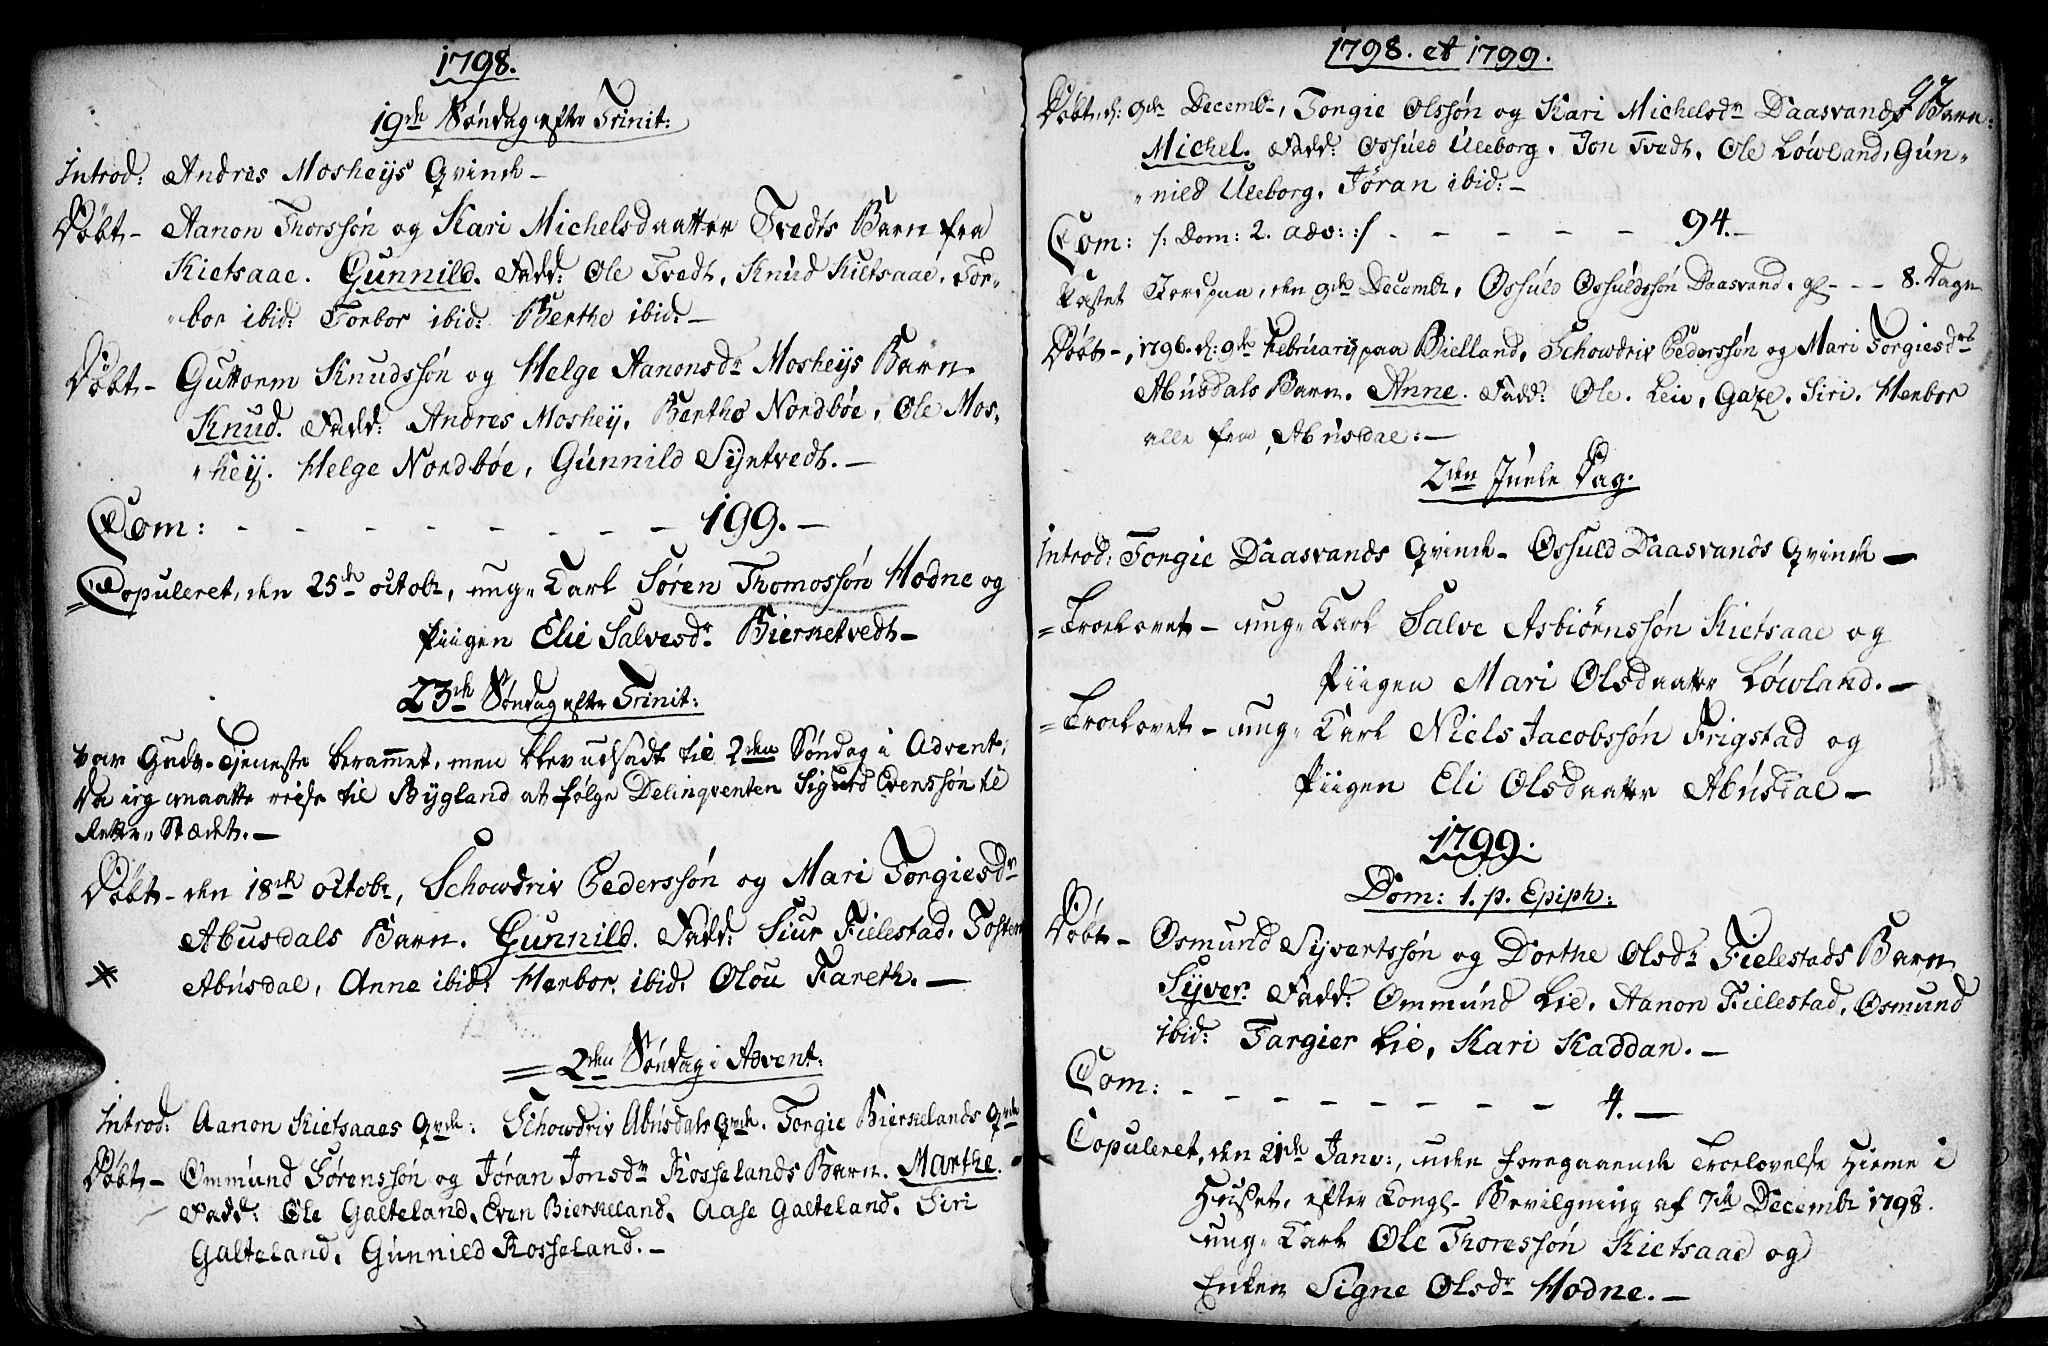 1798.
19de Søndag efter Trinit:
Introd: Andres Mosheÿs Qvinde –
Døbt – Aanon Thorssøn og Kari Michelsdaatter Tvedts Barn fra
Kietsaae. Gunnild. Fadd: Ole Tvedt, Knud Kietsaae, Tor-
bor ibid: Torbor ibid: Berthe ibid: –
Døbt – Guttorm Knudssøn og Helge Aanonsdr Mosheÿs Barn
Knud. Fadd: Andres Moshey, Berthe Nordbøe, Ole Mos-
heÿ. Helge Nordbøe, Gunnild Sÿntvedt. –
Com: – – – – – – – 199. –
Copuleret, den 25de octobr, ung-Karl Søren Thomossøn Hodne og
Piigen Elie Salvesdr Bierketvedt –
23de Søndag efter Trinit:
var Guds-Tjeneste berammet, men blev udsadt til 2den Søndag i Advent,
da jeg maatte reise til Bygland at følge Delinqventen Sigurd Evenssøn til
Retter-Stædet. –
Døbt – den 18de octobr, Schowdriv Pederssøn og Mari Torgiesdr
Abusdals Barn. Gunnild. Fadd: Siur Fielestad, Tosten
Abusdal, Anne ibid: Herbor ibid: Olou Fareth. –
2den Søndag i Advent:
Introd: Aanon Kietsaaes Qvde: Schowdriv Abusdals Qvde. Torgie Bierkelands Qvde
Døbt – Ommund Sørenssøn og Jøran Jonsdr Rosselands Barn. Marthe.
Fadd: Ole Galteland, Even Bierkeland, Aase Galteland, Siri
Galteland, Gunnild Rosseland. –
1798. et 1799.
97
Døbt, d: 9de Decembr, Torgie Olssøn og Kari Michelsdr Daasvands Barn:
Michel. Fadd: Ossuld Uleborg, Jon Tvedt, Ole Løwland, Gun-
nild Uleborg, Jøran ibid: –
Com: /: Dom: 2. adv: :/ – – – – – 94. –
Kastet Jord paa, den 9de Decembr, Ossuld Ossuldssøn Daasvand, gl – – – 8. Dage
Døbt –, 1796. d: 9de Februarij paa Bielland, Schowdriv Pederssøn og Mari Torgiesdrs
Abusdals Barn. Anne. Fadd: Ole. Lein, Gaze, Siri, Herbor
alle fra Abusdal: –
2den Juele Dag.
Introd: Torgie Daasvands Qvinde – Ossuld Daasvands Qvinde –
Troelovet – ung-Karl Salve Asbiørnssøn Kietsaae og
Piigen Mari Olsdaatter Løwland. –
Troelovet – ung-Karl Niels Jacobssøn Frigstad og
Piigen Eli Olsdaatter Abusdal –
1799.
Dom: 1. p. Epiph:
Døbt – Osmund Sÿvertssøn og Dorthe Olsdr Fielestads Barn
Sÿver. Fadd: Ommund Lie, Aanon Fielestad, Osmund
ibid: Targier Lie, Kari Kaddan. –
Com: – – – – – – – 4. –
Copuleret, den 21de Janv:, uden foregaaende Troelovelse hieme i
Huset, efter Kongl- Bevilgning af 7de Decembr 1798.
ung-Karl Ole Thoressøn Kietsaae og
Enken Signe Olsdr Hodne. –